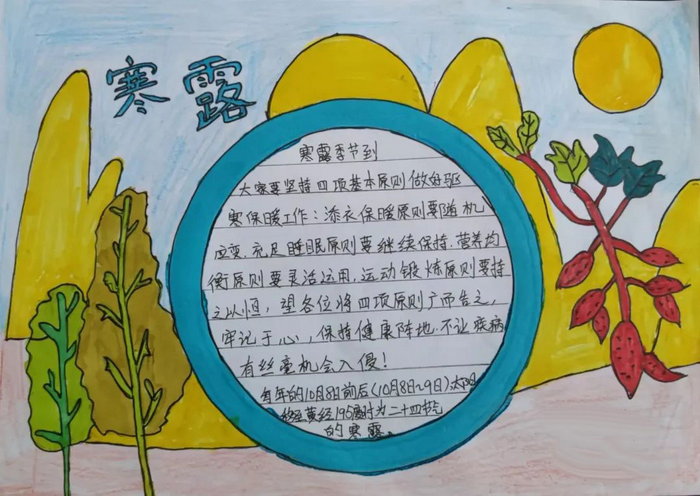 寒露
寒露季节到
大家要坚持四项基本原则做好驱
寒保暖工作：添衣保暖原则要随机
应变，充足睡眠原则要继续保持，营养均
衡原则要灵活运用，运动锻炼原则要持
之以恒，望各位将四项原则广而告之，
牢记于心，保持健康阵地，不让疾病
有丝毫机会入侵！
每年的10月8日前后（10月8日~9日）太阳
移至黄经195度时为二十四节气
的寒露